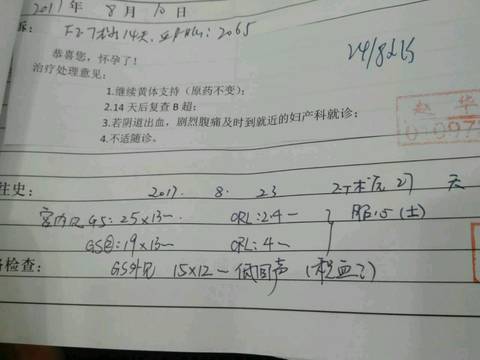 2017 年 8 月 10 日
诉: 术后14天 2065
恭喜您，怀孕了！
24/8
治疗处理意见：
1.继续黄体支持（原药不变）；
2.14 天后复查 B 超；
3.若阴道出血，剧烈腹痛及时到就近的妇产科就诊；
4.不适随诊。
往史： 2017. 8. 23 术后27 天
宫内见GS：25×13 CRL：2.4
GS②：19×13 CRL：4
检查： GS外见 15×12 低回声（积血？）